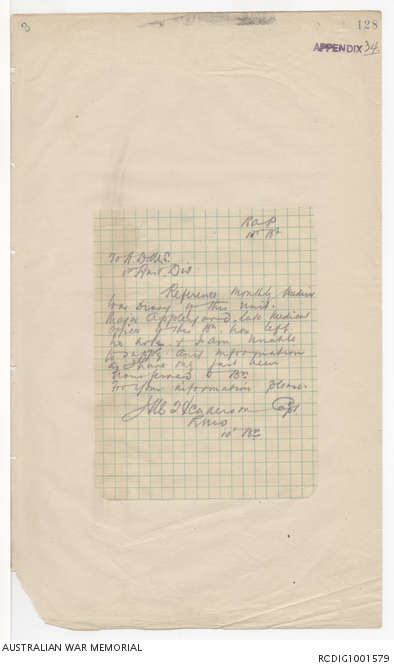 3
128
APPENDIX 34.
R A P
10th Bn
To A.D.M.S.
1st Aust Div
Reference Monthly Medical
War Diary of this Unit.
Major Appleyard, late Medical
Officer of the Bn has left
no notes & I am unable
to supply any information
as I have only just been
transferred to Bn.
For your information please.
Henderson Capt
RMO
10th Bn
AUSTRALIAN WAR MEMORIAL
RCDIG1001579